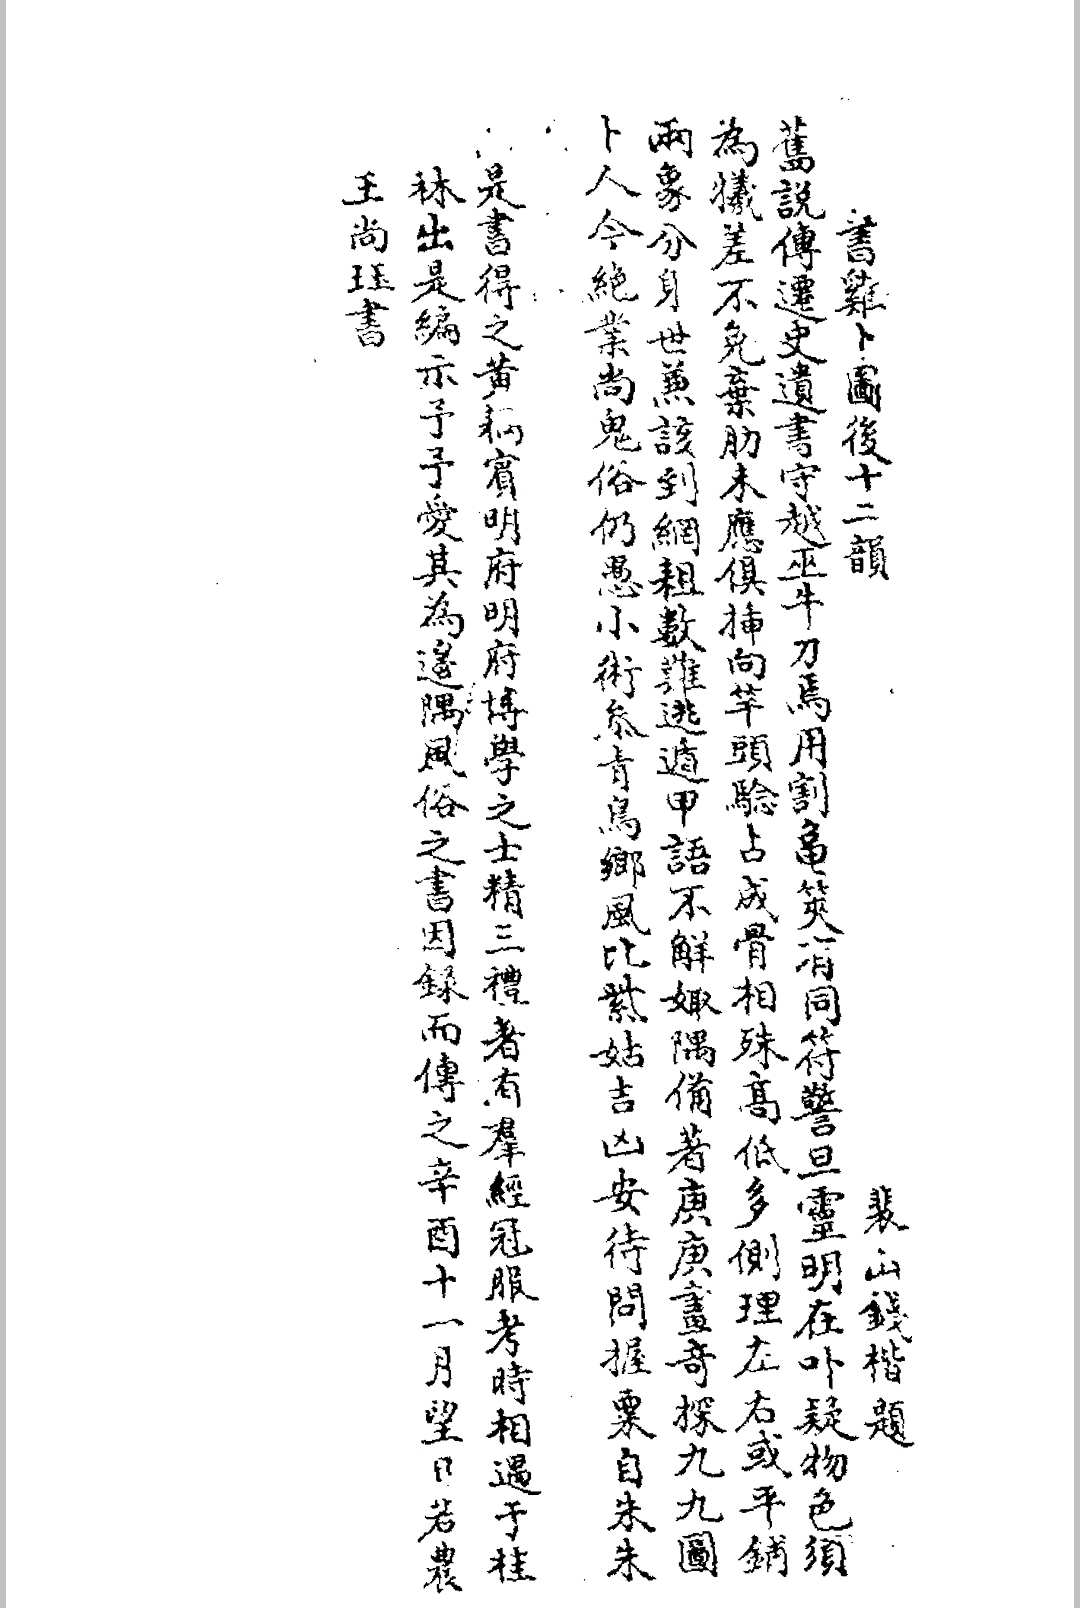 書雞卜圖後十二韻
裴山錢楷題
舊說傳遷史遺書守越巫牛刀焉用割龜筴有同符警旦靈明在卟疑物色須
為犧差不免棄肋未應俱揷向竿頭驗占成骨相殊高低多側理左右或平鋪
兩象分身世兼該到網䍜數難逃遁甲語不解娵隅備著庚庚畫奇探九九圖
卜人今絶業尚鬼俗仍愚小術參青烏鄉風比紫姑吉凶安待問握粟自朱朱
是書得之黄耦賓明府明府博學之士精三禮著有羣經冠服考時相遇于桂
林出是編示予予愛其為邊隅風俗之書因録而傳之辛酉十一月望日若農
王尚珏書